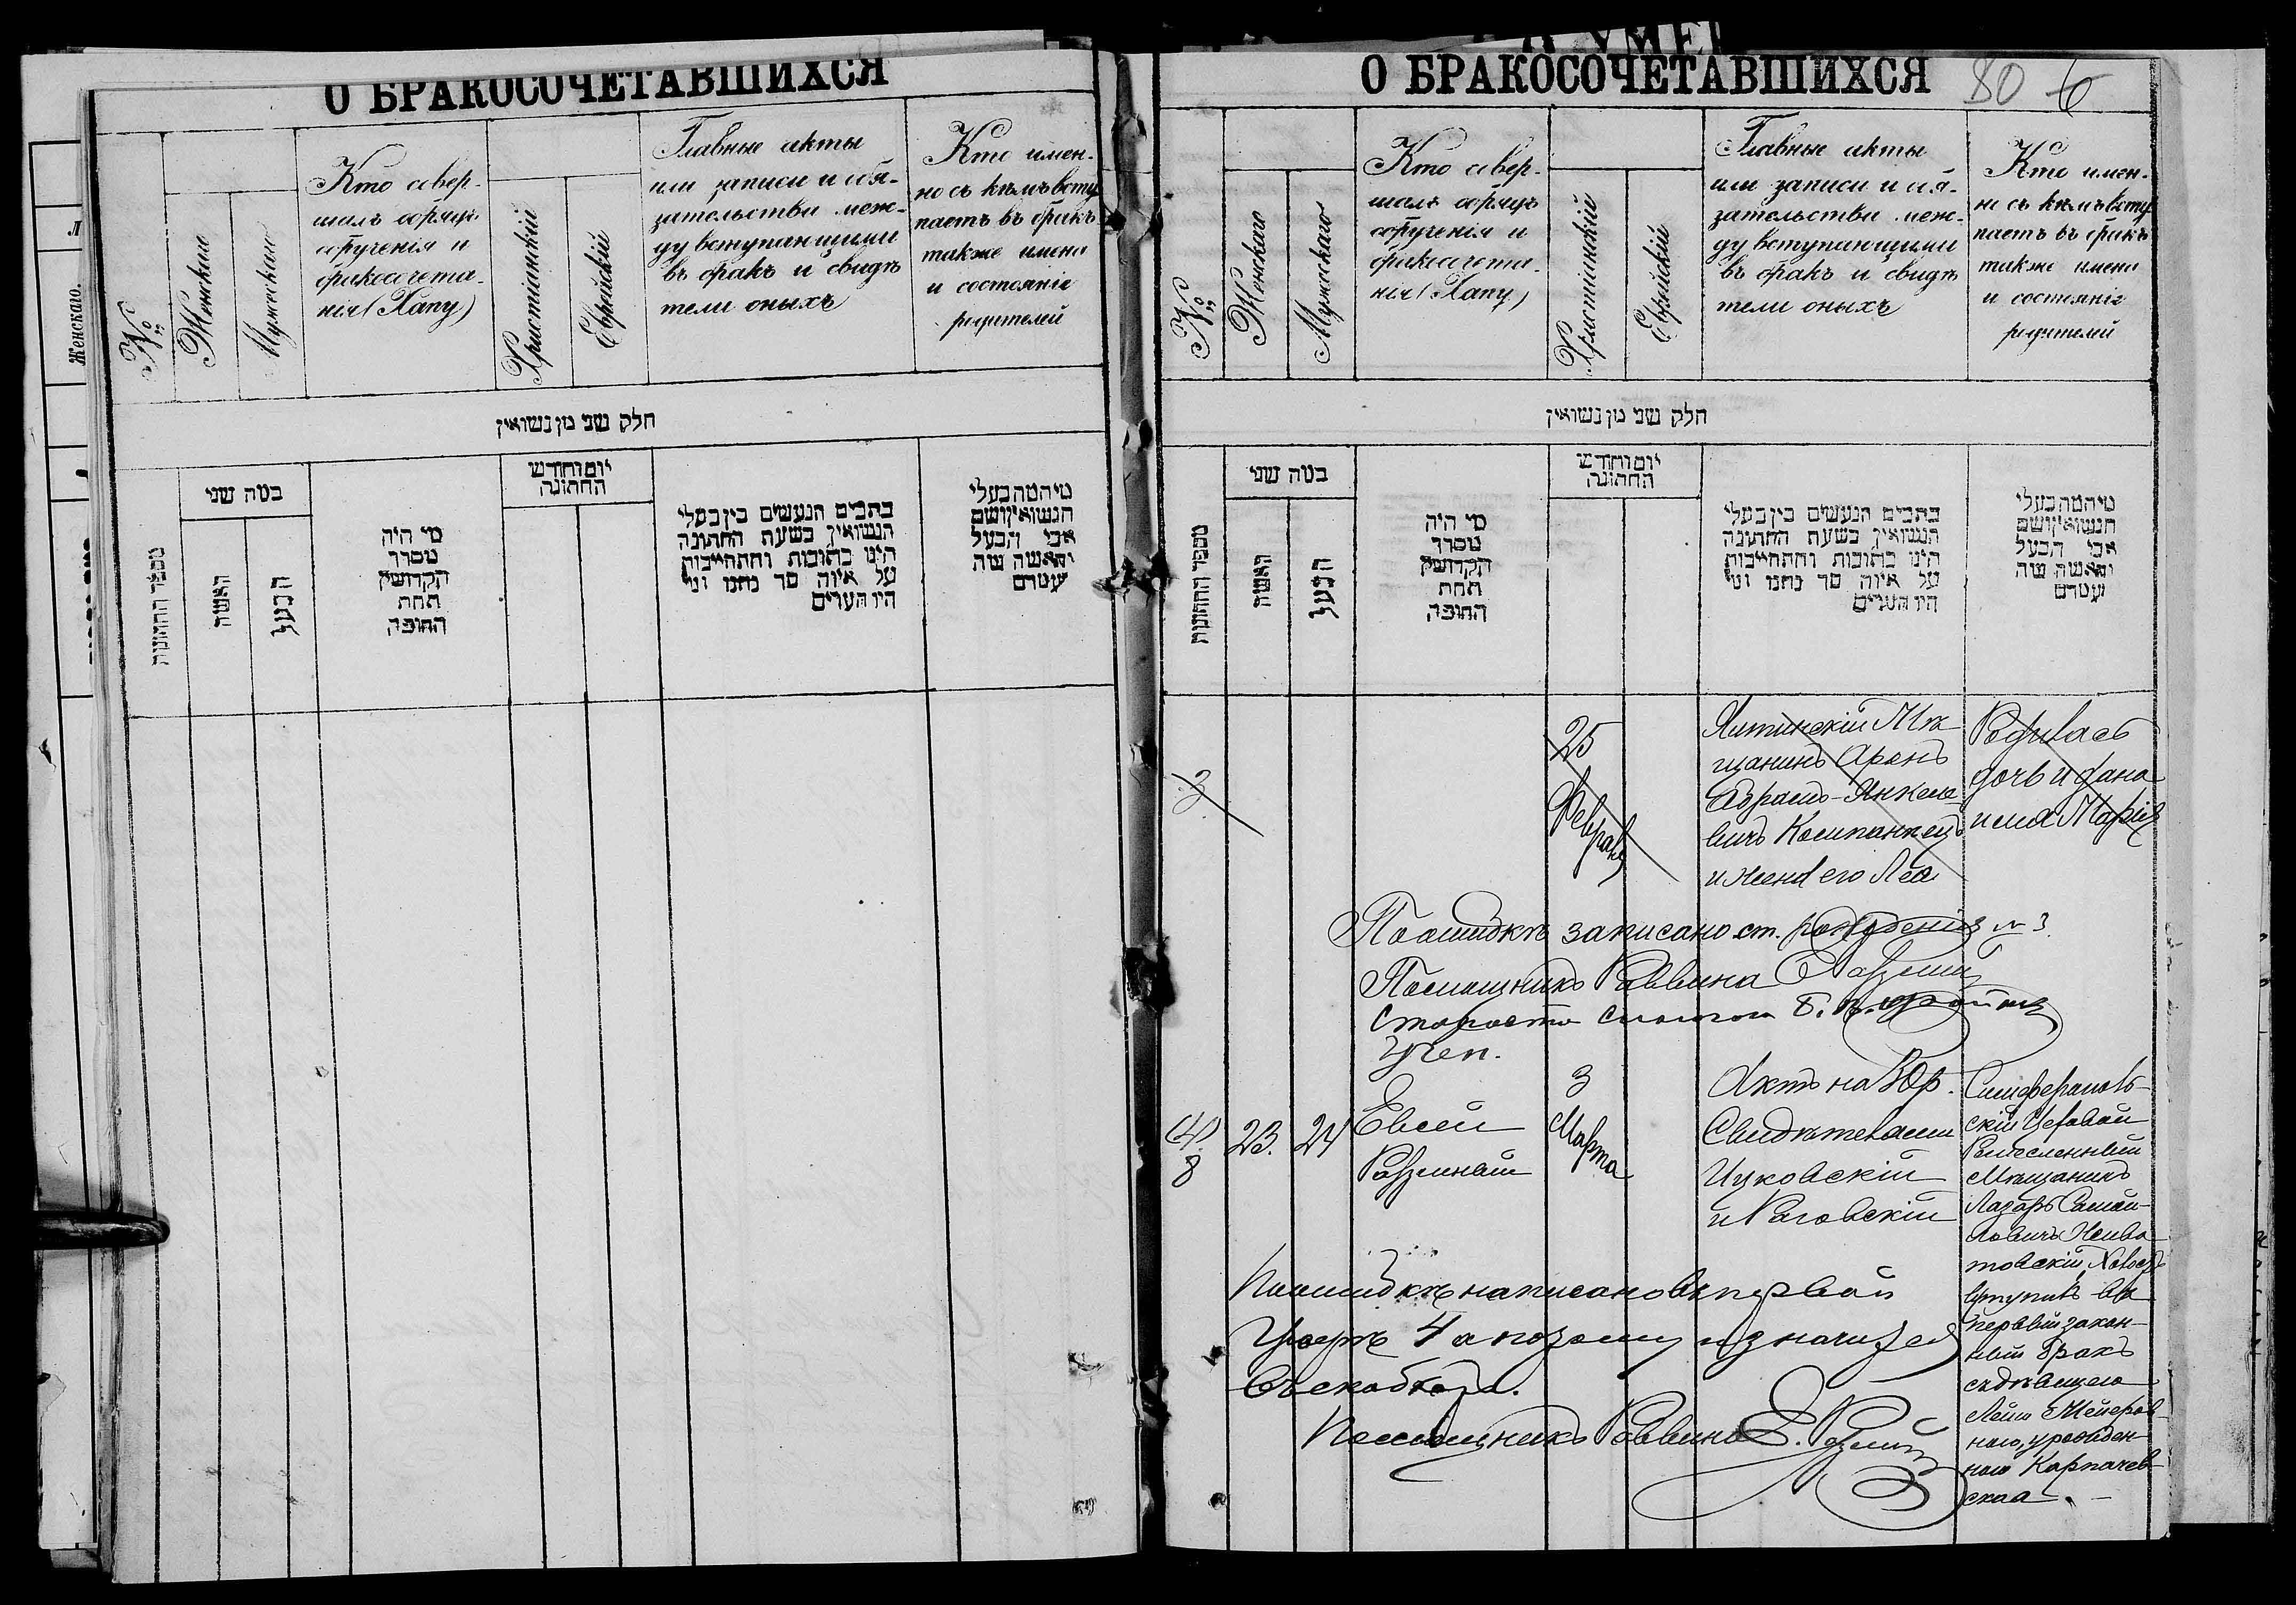 О БРАКОСОЧЕТАВШИХСЯ
№
Женскаго
Мужескаго
Кто совер-
шалъ обрядъ
обрученія и
бракосочета-
нія (Хапу)
Христіанскій
Еврейскій
Главные акты
или записи и обя-
зательства меж-
ду вступающими
въ бракъ и свидѣ
тели оныхъ
Кто имен-
но съ кѣмъ всту
паетъ въ бракъ
также имена
и состояніе
родителей
חלק שני מן נשואין
מספר החתונות
כמה שני
האשה
הבעל
מי היה
מסדר
הקדושין
תחת
החופה
יום וחודש
החתונה
כתבים הנעשים בין בעלי
הנשואין בשעת החתונה
היינו כתובות והתחייבות
על איזה סך נתנו ומי
היו העדים
מיהמה בעלי
הנשואין ושם
אבי הבעל
והאשה ומה
מעמדם
Женскаго.
О БРАКОСОЧЕТАВШИХСЯ
80 6
№
Женскаго
Мужескаго
Кто совер-
шалъ обрядъ
обрученія и
бракосочета-
нія (Хапу)
Христіанскій
Еврейскій
Главные акты
или записи и обя-
зательства меж-
ду вступающими
въ бракъ и свидѣ
тели оныхъ
Кто имен-
но съ кѣмъ всту
паетъ въ бракъ
также имена
и состояніе
родителей
חלק שני מן נשואין
מספר החתונות
כמה שני
האשה
הבעל
מי היה
מסדר
הקדושין
תחת
החופה
יום וחודש
החתונה
כתבים הנעשים בין בעלי
הנשואין בשעת החתונה
היינו כתובות והתחייבות
על איזה סך נתנו ומי
היו העדים
מיהמה בעלי
הנשואין ושם
אבי הבעל
והאשה ומה
מעמדם
3
25
Февраля
Ялтинскій Мѣ
щанинъ Аронъ
Абрамъ-Янкеле-
вичъ Компанеецъ
и жена его Леа
Родилась
дочь и дана
имя Марія
По ошибкѣ записано ст. рожденія № 3
Помощникъ Раввина
Староста
Учен.
(4)
8
23.
24
Евсей
3
Марта
Актъ на 30р.
Свидѣтелами
Цуковскій
и Раговскій
Симферополь-
скій Цеховой
Ремесленный
Мѣщанинъ
Лазарь Самой-
ловичъ
вступилъ въ
первый закон-
ный бракъ
съ дѣвицего
Леею Мейеров-
ною, урожден-
ною Карпачев-
скаа. -
По ошибкѣ написано въ первой
Графѣ 4 а по этому
въ скобкахъ.
Помощникъ Раввина Е.